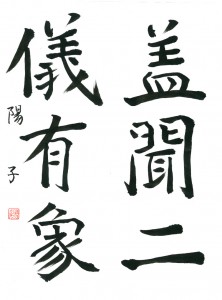 盖聞二
儀有象
陽子